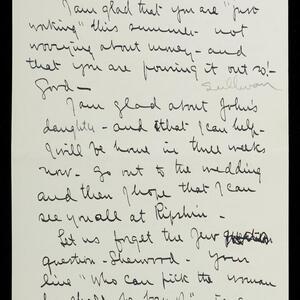 I am glad that you are "just
working" this summer - not
worrying about money - and
that you are pouring it out so! -
Good -
Sullivan
I am glad about John's
daughter - and that I can help -
I will be home in three weeks
now - go out to the wedding
and then I hope that I can
see you all at Ripshin -
Let us forget the Jew question
question - Sherwood - Your
line "Who can pick the woman
he shall